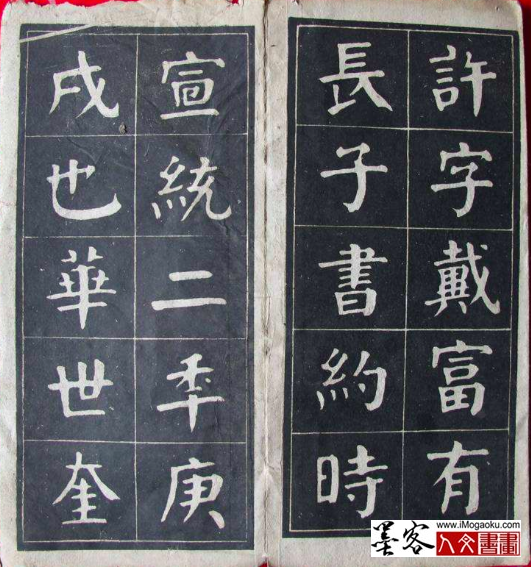 許字戴富有
長子書約時
宣統二年庚
戌也華世奎
www.iMogaoku.com
墨客人文書畫